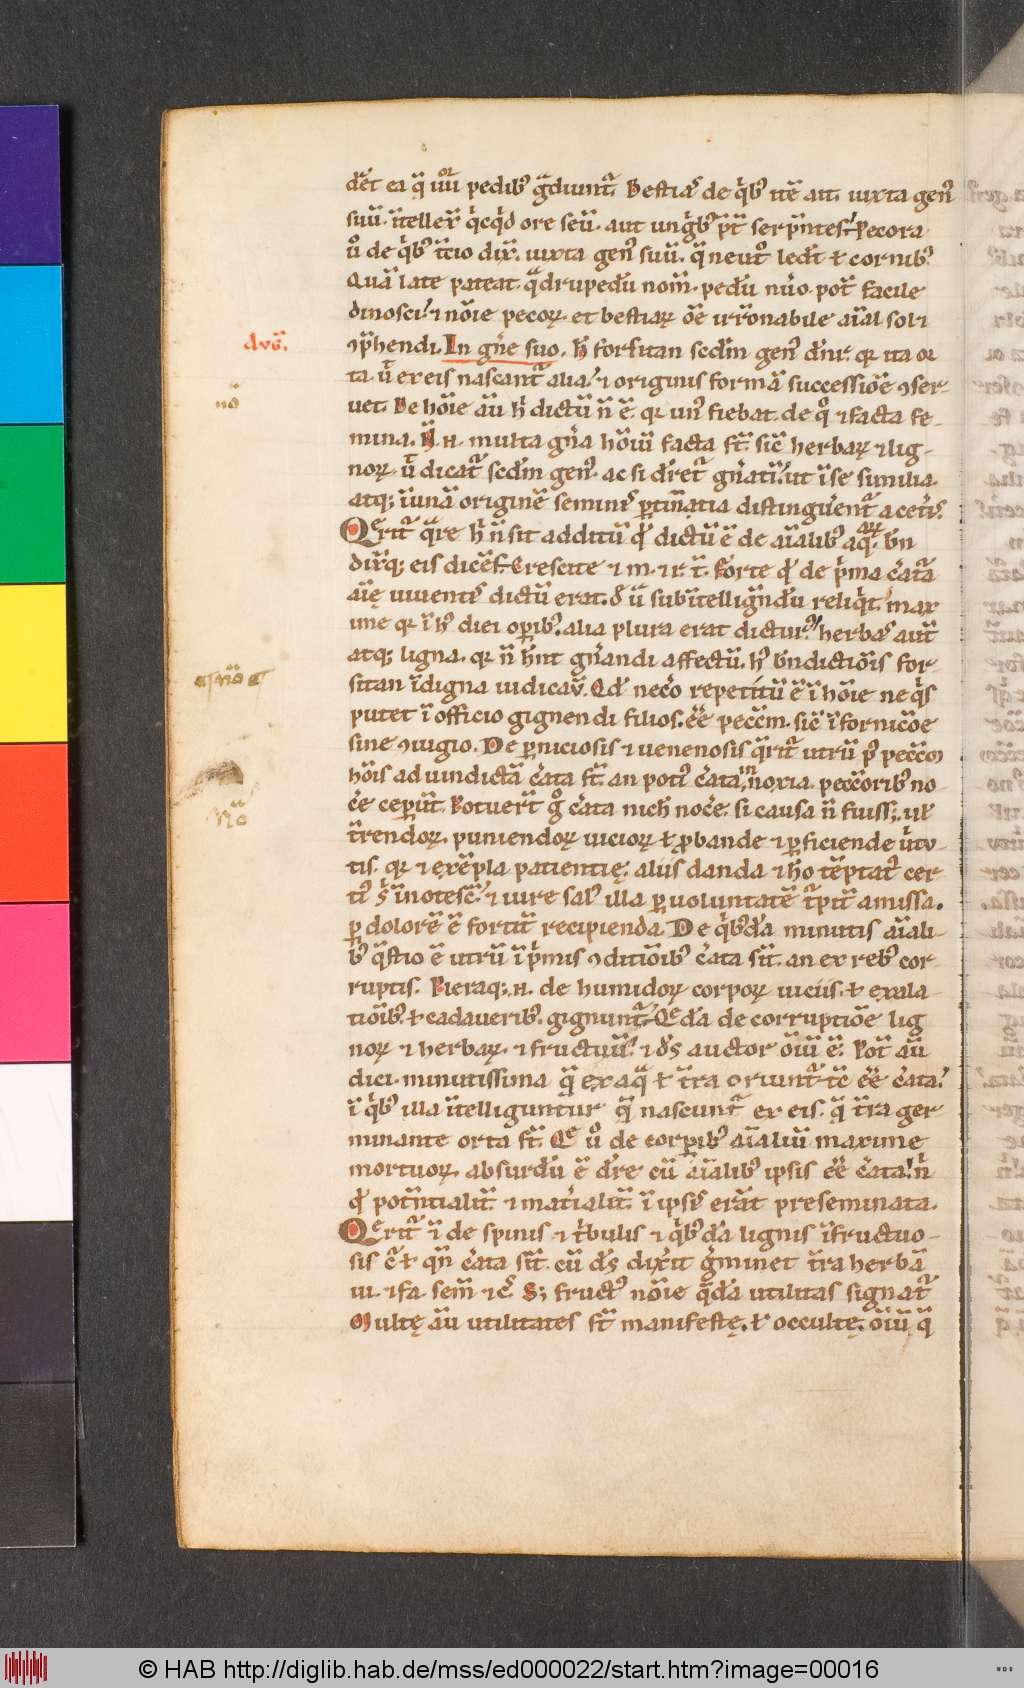 dēt ea q̄ uͦū pedibꝰ g̃diunt᷑. Bestiaꝫ de q̇bꝰ itē ait. iuxta genꝰ
suū. ītellex̄ q̇cq̇d ore seū. aut ungͥbꝰ p̄t serp̄ntes. Pecora
ů de q̇bꝰ t̄cio dix̄. iuxta genꝰ suū. q̄ neut͛ ledt̄ ł cornibꝰ.
Quā late pateat q̃drupedū nom̄. pedū nūo. pot̄ facile
dinosci. ⁊ nōie pecoꝝ. et bestiaꝝ oē irr̄onabile aīal soli
ꝯp̄hendi. In gn̄e suo. h̄ forsitan scdm̄ genꝰ dnr̄. qꝛ ita or
Avḡ.
ta. ů ex eis nascant᷑ alia. ⁊ originis formā successiōe ꝯser-
nō
uet. De hōie aū h̄ dictū n̄ ē. qꝛ unꝰ fiebat. de qͦ ⁊ facta fe-
mina. N̄ .n. multa gn̄a hōiū facta st̄. sic̄ herbaꝝ ⁊ lig-
noꝝ. ů dicat᷑ scdm̄ genꝰ. ac si dr̄et᷑ gn̄atī. ut īse similia.
atqꝫ ī unā originē seminꝭ ꝑtin̄atia distinguēnt᷑ a cet͛is.
Querit᷑ q̃re h̄ n̄ sit additū qd̄ dictū ē de aīalibꝰ aq̄ꝝ. bn̄
dix̄qꝫ eis dicēs. Crescite ⁊ m. ⁊ r. t̄. Forte qd̄ de p̄ma c̄at᷑a
aīę uiuentꝭ dictū erat. ů subītellign̄dū reliq̇t. max
ime qꝛ ī hꝰ diei opībꝰ. alia plura erat dictur᷒. herbas aut̄
atqꝫ ligna. qꝛ n̄ hn̄t gn̄andi affectū. hꝰ bn̄dictiōis for
sitan īdigna iudicav̄. Qd̄ necō repetitū ē ī hōie ne q̇s
amō c
putet ī officio gignendi filios. eē pecc̄m. sic̄ ī fornic̄oe
sine ꝯiugio. De ꝑniciosis ⁊ uenenosis q̄rit᷑ utrū ꝑ pecc̄m
hōis ad uindictā c̄ata st̄. an potꝰ c̄ata inoxia. pecc̄oribꝰ no-
cē cep̄ūt. Potuert̄ gͦ c̄ata nich̄ nocē. si causa n̄ fuissꝫ. uł
Nō
t̄rendoꝝ. puniendoꝝ uicioꝝ ł ꝓbande ⁊ ꝑficiende ůtu-
tis. qꝛ ⁊ exēpla patientię. aliis danda ⁊ hō tēptat᷑ cer
tiꝰ s ī inotesc̄. ⁊ iure salꝰ illa ꝑ uoluntatē t᷑pit̄ amissa.
ꝑ dolorē ē fortit᷑ recipienda. De q̇bꝰdā minutis aīali-
bꝰ q̄stio ē utrū ī p̄mis ꝯditiōibꝰ c̄ata sīt. an ex rebꝰ cor-
ruptis. Pleraqꝫ .n. de humidoꝝ corpoꝝ uiciis. ł exala-
tiōibꝰ. ł cadaueribꝰ. gignunt᷑. Quedā de corruptiōe lig
noꝝ ⁊ herbaꝝ. ⁊ fructuū. ⁊ ds̄ auctor oīū ē. Pot̄ aū
dici. minutissima q̄ ex aq̄ ł t̄ra oriunt᷑ tc̄ eē c̄ata.
ī q̇bꝰ illa ītelliguntur q̄ nascunt᷑ ex eis. q̄ t̄ra ger
minante orta st̄. Que ů de corꝑibꝰ aīaliū maxime
mortuoꝝ. absurdū ē dr̄e cū aīalibꝰ ipsis eē c̄ata. nͥ
qd̄ potn̄tialit᷑. ⁊ mat͛ialit᷑. ī ipsꝭ erāt preseminata.
Querit᷑ ī de spinis ⁊ t͛bulis ⁊ q̇bꝰdā lignis īfructuo-
sis c̄ ł qn̄ c̄ata sīt. cū ds̄ dix̄it g͛minet t̄ra herbā
ui. ⁊ fa. sem̄ ⁊c̄. Sꝫ fructꝰ nōie q̄dā utilitas signat᷑
Multę aū utilitates st̄ manifestę. ł occultę. oīū q̄
© HAB http://diglib.hab.de/mss/ed000022/start.htm?image=00016